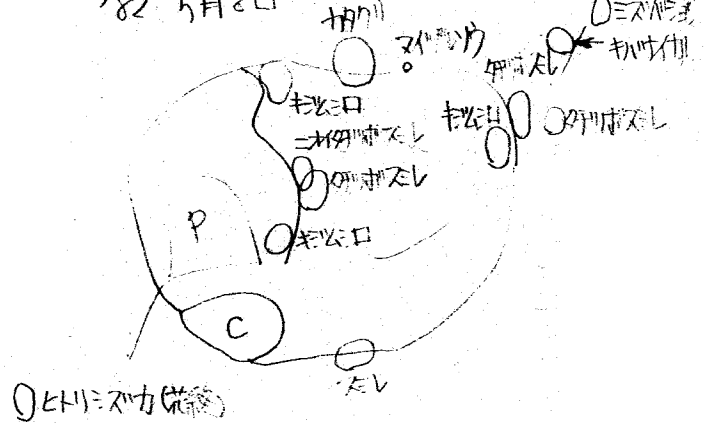 '82 5月8日
カタクリ
マイヅルソウ
ミズバショウ
キバナイカリ
タチツボスミレ
キジムシロ
キジムシロ
タチツボスミレ
ニオイタチツボスミレ
タチツボスミレ
P
キジムシロ
C
スミレ
ヒトリシズカ(花終)